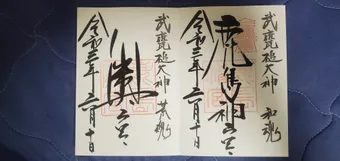 武甕槌大神 和魂
鹿島神宮
令和三年二月十日
武甕槌大神 荒魂
奥宮
令和三年二月十日